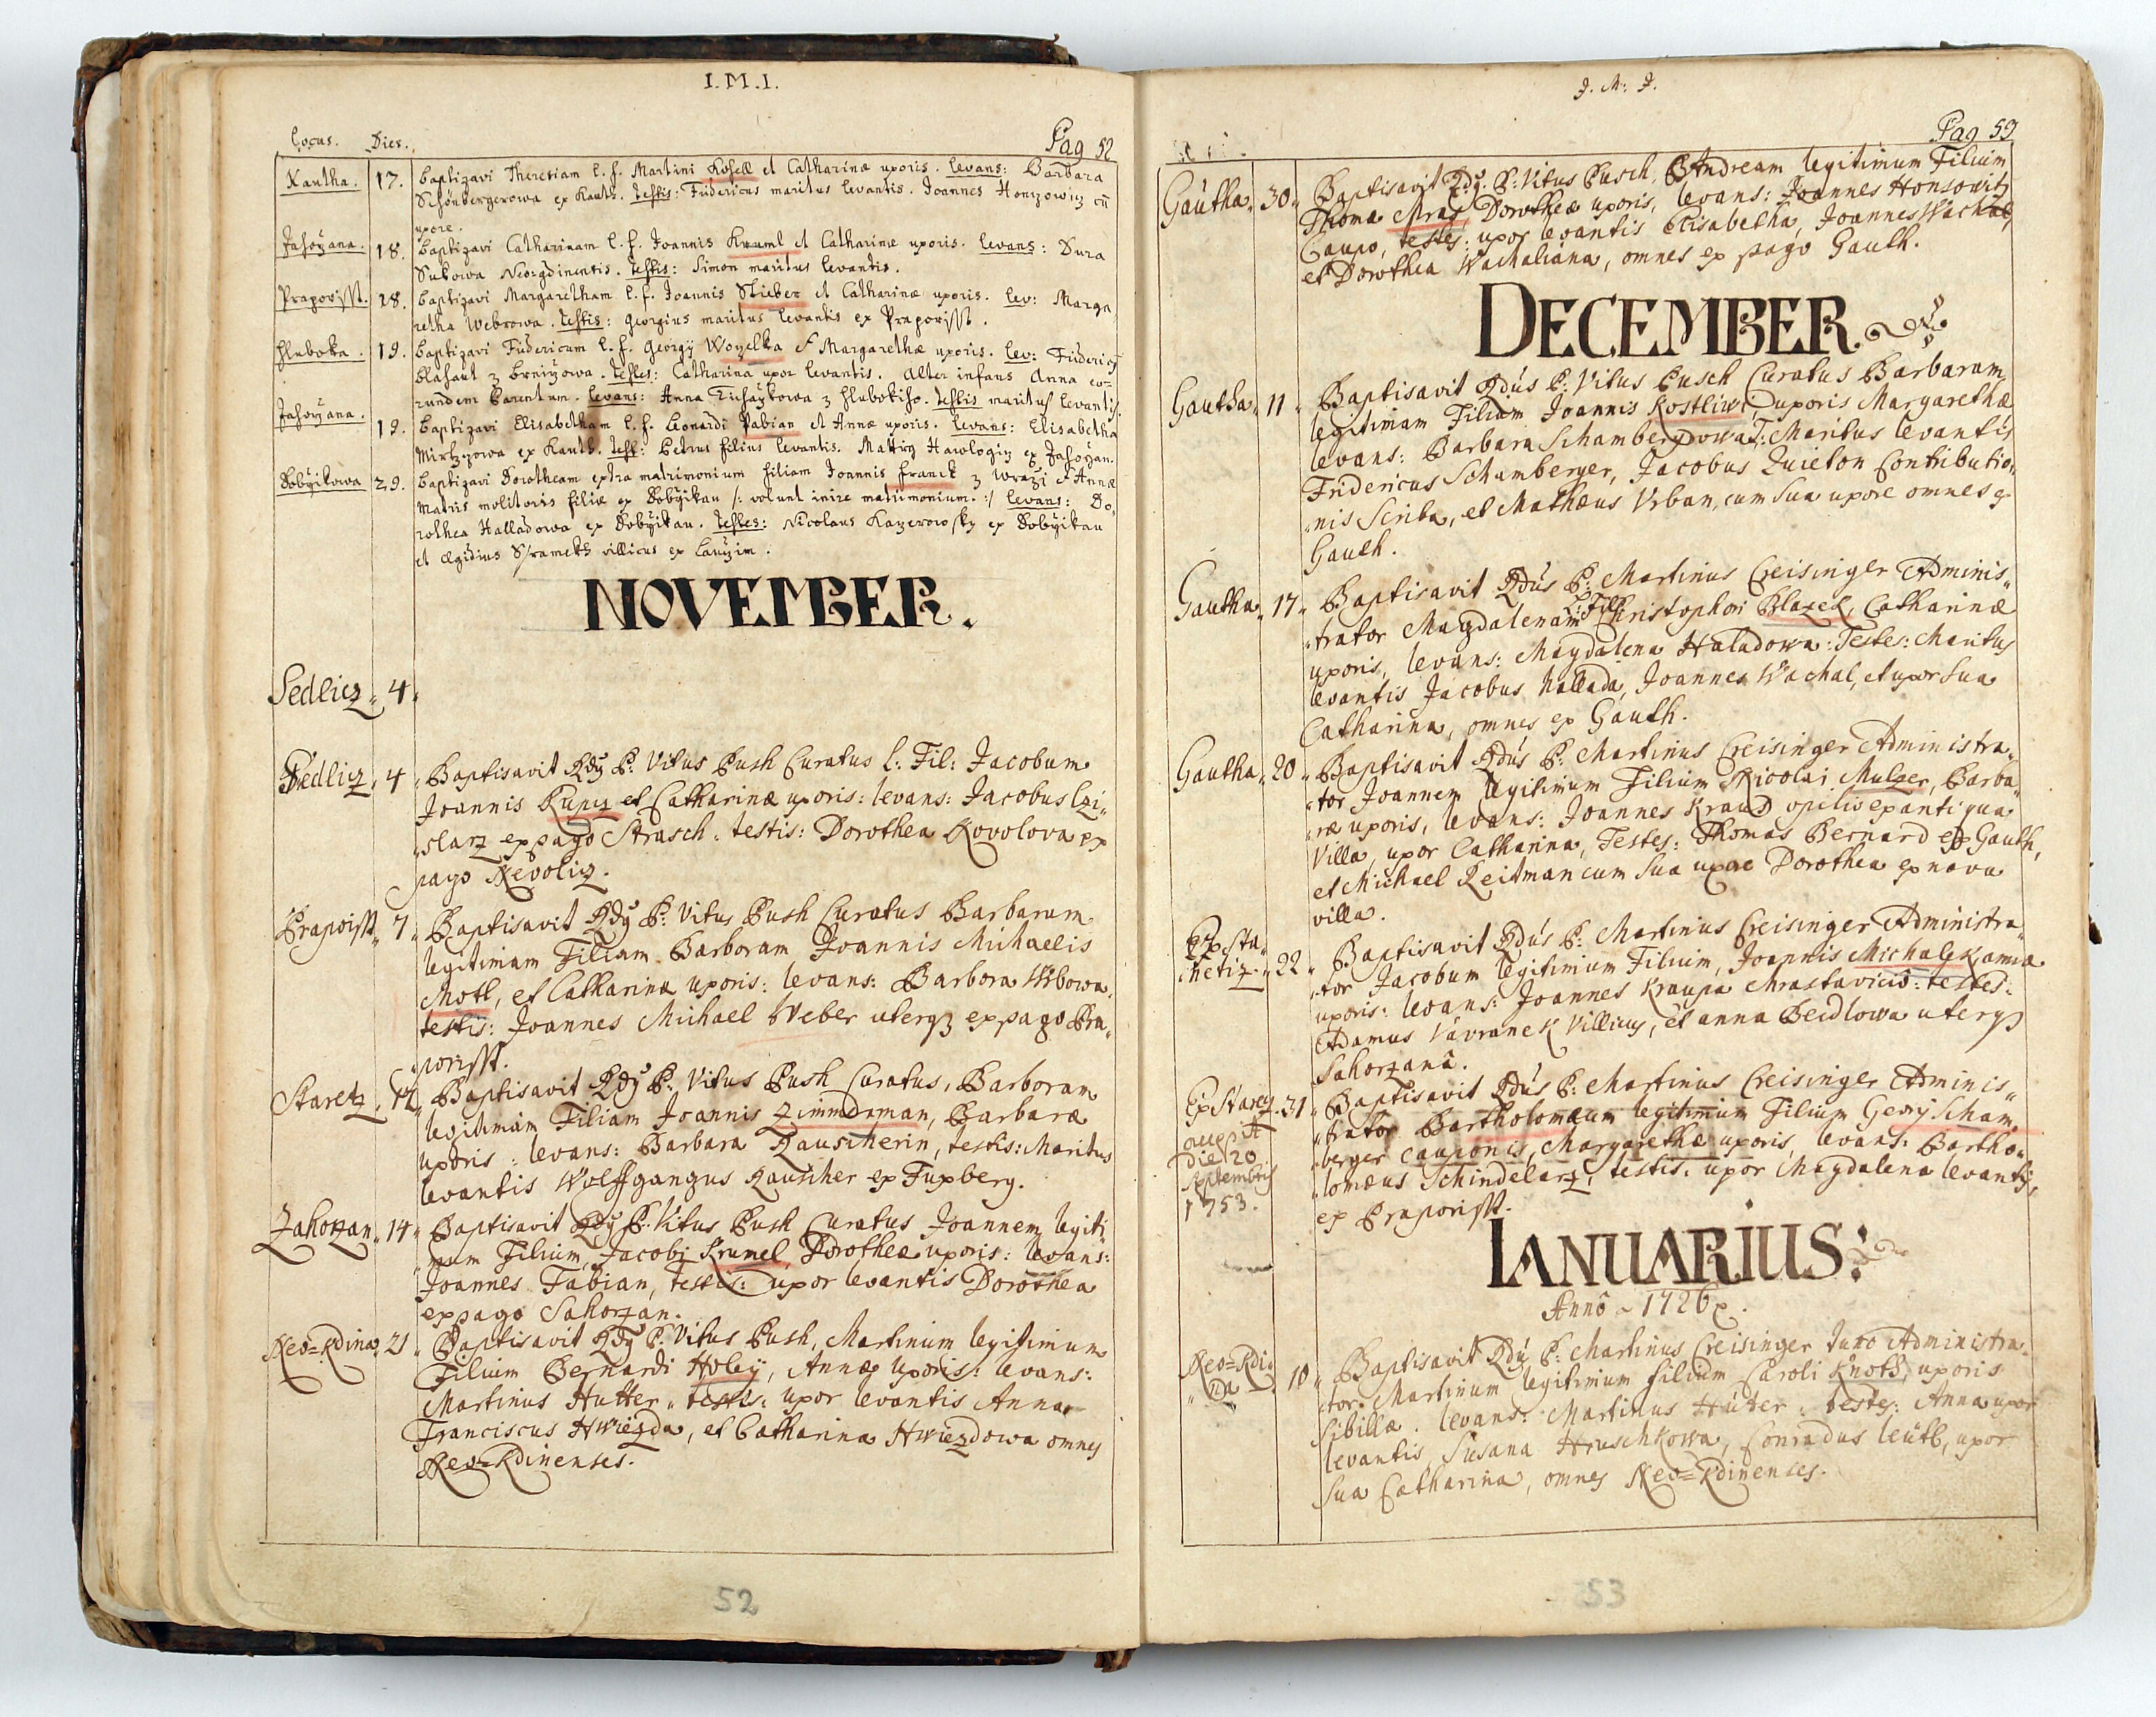 I.M.I.
Locus. Dies.
Pag 52
Kautha. 17. Baptizavi Theresiam l. f. Martini Kosell et Catharinæ uxoris. Levans: Barbara
Schönbergerowa ex Kauth. testis: Fridericus maritus levantis. Joannes Honzowitz cū
uxore.
18. Baptizavi Catharinam l. f. Joannis Kruml et Catharinæ uxoris. Levans: Dura
Neogdinensis. testis: Simon maritus levantis.
Praporisst. 18. Baptizavi Margaretham l. f. Joannis Stieber et Catharinæ uxoris. lev: Marga
retha Webrowa. testis: Georgius maritus levantis ex Praporisst.
Hluboka. 19. Baptizavi Fridericum l. f. Georgÿ Woyelka et Margarethæ uxoris. lev:
testes: Catharina uxor levantis. Alter infans Anna eo=
rundem Parentum. levans: Anna z Hlubokiho. testis maritus levantis.
19. Baptizavi Elisabetham l. f. Leonardi Pabian et Annæ uxoris. levans: Elisabetha
ex Kauth. test: Petrus filius levantis.
29. Baptizavi Dorotheam extra matrimonium filiam Joannis Franck z et Annæ
Matris molitoris filiæ ex /: volunt inire matrimonium. :/ levans: Do,
rothea Halladowa ex testes: Nicolaus ex
et Ægidius villicus ex
NOVEMBER.
Sedlicz 4
Sedlicz 4 Baptisavit Rdg P: Vitus Push Curatus l: Fil: Jacobum
Joannis Kupez et Catharinæ uxoris: levans: Jacobus Czi
slarz ex pago Strasch: testis: Dorothea Kovolova ex
pago Nevolicz.
Praporisst 7 Baptisavit Rdg P: Vitus Push Curatus Barbaram
legitimam Filiam Barboram Joannis Michaelis
Motl, et Catharinæ uxoris: levans: Barbora Wbowa
testis: Joannes Michael Weber uterqz ex pago Pra
porisst.
Staretz 12 Baptisavit Rdg P: Vitus Push Curatus, Barboram
legitimam Filiam Joannis Zimmdrman, Barbaræ
uxoris: levans: Barbara Rauscherin, testis: Maritus
levantis Wolffgangus Rauscher ex Fuxberg.
Zahorzan 14 Baptisavit Rdg P: Vitus Push Curatus Joannem legiti
mum Filium, Jacobi Krumel, Dorotheæ uxoris: levans:
Joannes Fabian, testis: uxor levantis Dorothea
ex pago Sahorzan.
Neo=Kdinæ 21 Baptisavit Rdg P: Vitus Push, Martinum legitimum
Filium Bernardi Holeÿ, Annæ uxoris: levans:
Martinus Hutter testis: uxor levantis Anna
Franciscus Hwiezda, et Catharina Hwiezdowa omnes
Neo=Kdinenses.
52
J. M: J.
Pag 53
Gautha 30 Baptisavit Rdg P: Vitus Pusch, Andream legitimum Filium
Thoma Mraz Dorotheæ uxoris, levans: Joannes Honsowitz
Caupo, testes: uxor levantis Elisabetha, Joannes Wachal,
et Dorothea Wachaliana, omnes ex pago Gauth.
DECEMBER
Gautha 11 Baptisavit Rdús P: Vitus Pusch Curatus Barbaram
legitimam Filiam Joannis Kostliw, uxoris Margarethæ
levans: Barbara Schambergrowa T: Maritus levantis
Fridericus Schamberger, Jacobus Quieton Contributio
nis Scriba, et Mathæus Vrban, cum sua uxore omnes ex
Gauth.
Gautha 17 Baptisavit Rdús P: Martinus Creisinger Adminis
trator Magdalenam L: Fil: Christophori Blazek, Catharinæ
uxoris, levans: Magdalena Haladowa: Testes: Maritus
levantis Jacobus Hallada, Joannes Wachal, et uxor sua
Catharina, omnes ex Gauth.
Gautha 20 Baptisavit Rdús P: Martinus Creisinger Administra
tor Joannem legitimum Filium Nicolai Mulzer, Barba
ræ uxoris, levans: Joannes Kraud opilio ex antiqua
Villa, uxor Catharina, Testes: Thomas Bernard ex Gauth,
et Michael Reitman cum sua uxore Dorothea ex nova
villa.
Ex Sta
netiz 22 Baptisavit Rdús P: Martinus Creisinger Administra
tor Jacobum legitimum Filium, Joannis Michalek, annæ
uxoris: levans: Joannes Kraupa Mrastavicio: testes:
Adamus Vavranek Villicus, et anna Beidlowa uterqz
Sahorzanâ.
Ex Starez 21 Baptisavit Rdús P: Martinus Creisinger Adminis
trator Bartholomæum legitimum Filium Georÿ Scham
berger cauponis, Margarethæ uxoris, levans: Bartho
lomæus Schindelarz, testis: uxor Magdalena levantis,
ex Praporisst.
die 20
Septembris
1753.
IANUARIUS:
Annô 1726
Neo=Kdi
na 10 Baptisavit Rdg P: Martinus Creisinger Administra
tor Martinum legitimum filium Caroli Knoth, uxoris
Sibillæ. levans: Martinus Hüter: testes: Anna uxor
levantis, Susana Hruschkowa, Conradus leütl, uxor
sua Catharina, omnes Neo=Kdinenses.
53